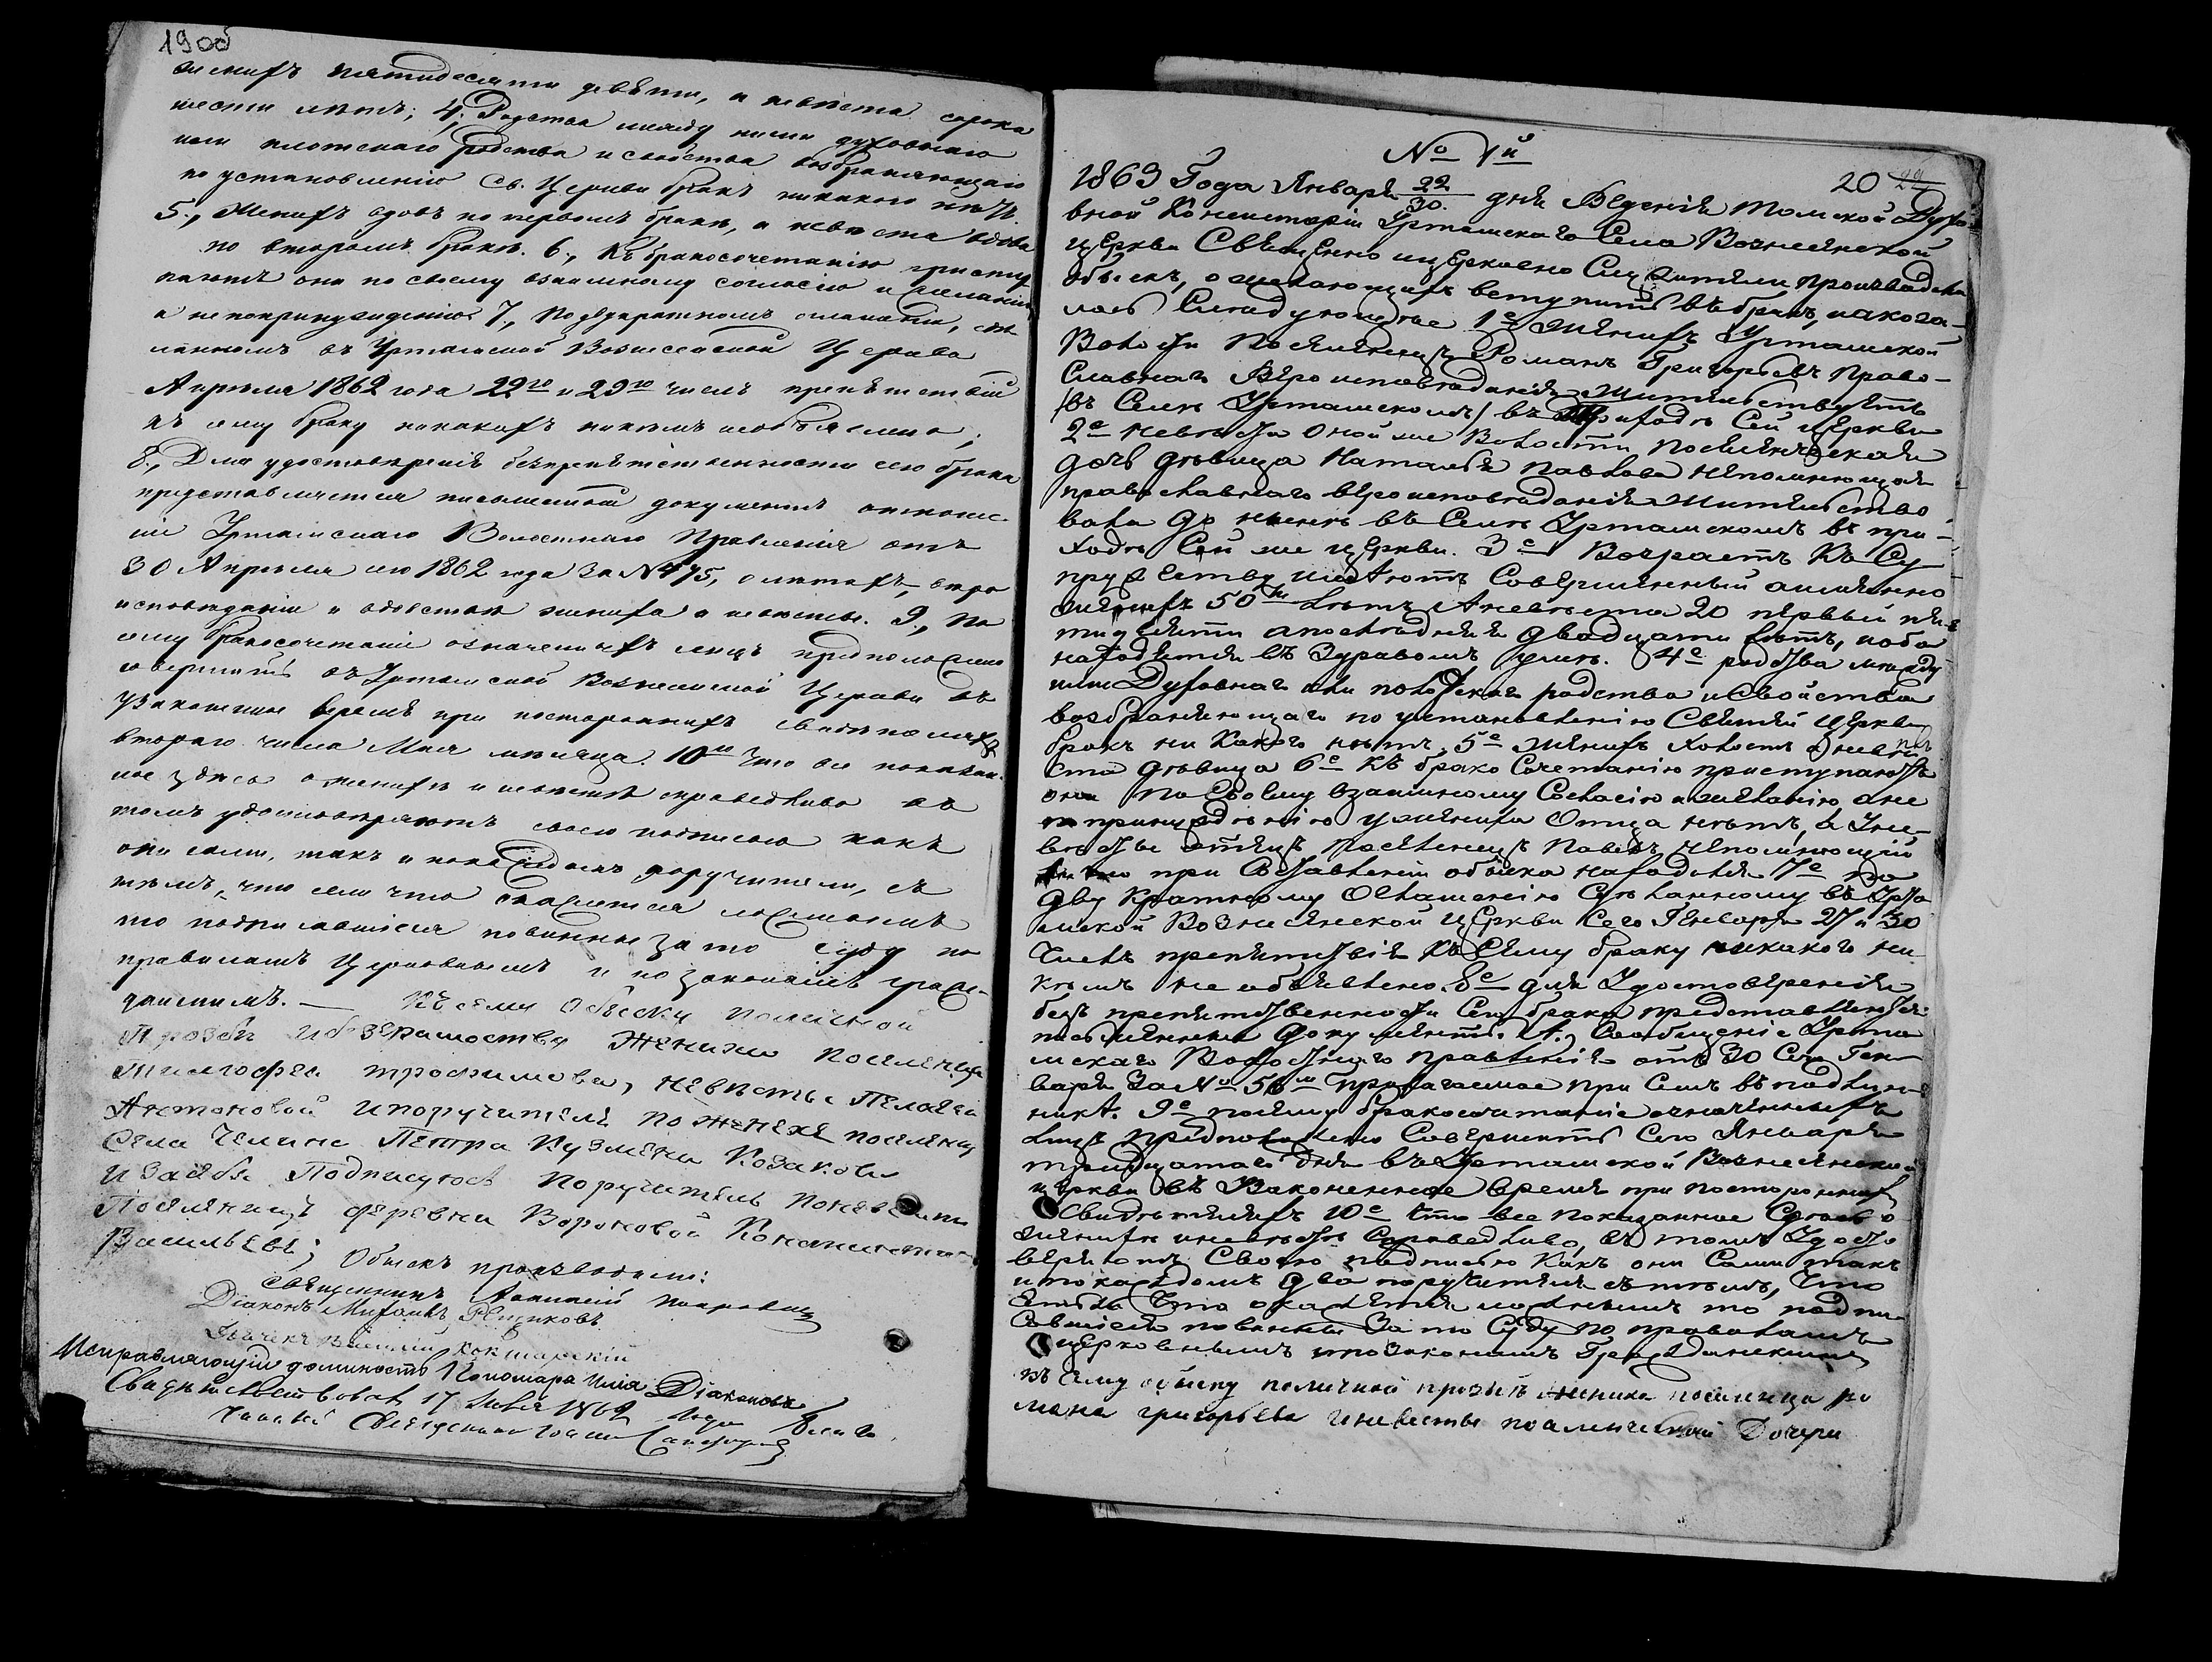 19об
женихъ пятидесяти девяти, а невѣста сорока
шести лѣтъ; 4, Родства между ними духовнаго
или плотскаго родства и свойства возбраняющаго
по установленію Св. Церкви бракъ никакого нѣтъ.
5., Женихъ вдовъ по первомъ бракѣ, а невѣста вдова
по второмъ бракѣ. 6., Къ бракосочетанію приступ
паютъ они по своему взаимному согласію и желанію,
а не по принужденію. 7., По двукратномъ оглашеніи, сдѣ
ланномъ въ Уртамской Вознесенской Церкви
Апрѣля 1862 года 22го и 29го чиселъ препятствій
къ сему браку никакихъ никѣмъ необъявлено;
8., Для удостовѣренія безпрепятственности сего брака
представляется письменный документъ отноше-
ніе Уртамскаго Волостнаго Правленія отъ
30 Апрѣля сего 1862 года За № 475, о лѣтахъ, вѣро
исповѣданіи и вдовствѣ жениха и невѣсты. 9., По
сему бракосочетаніе означенныхъ лицъ предположено
совершить въ Уртамской Вознесенской Церкви въ
узаконенное время при постороннихъ свидѣтеляхъ
втораго числа Мая мѣсяца. 10е Что все показан-
ное здѣсь о женихѣ и невѣстѣ справедливо въ
томъ удостовѣряютъ своею подписью какъ
они сами, такъ и по каждомъ поручители, съ
тѣмъ, что если что окажется ложнымъ
то подписавшіеся повинны за то суду по
правиламъ Церковнымъ и по законамъ граж-
данскимъ. — Къ сему обыску поличной
прозбы и безграмоству Жениха поселенца
Тимофея трофимова, невѣсты Пелагеи
Антоновой и поручителя по женехе поселенц
села Чилина Петра Кузмена Козакова
и засебя Подписуюсь поручитель поневесте
Поселенецъ деревни Вороновой Констант
Васильевъ; Обыскъ производили:
Священникъ Покровскій
Діаконъ Михаилъ Рещиковъ
Дьячекъ Кокшарскій
Исправляющій должность Пономаря Илія Діаконовъ
Свидѣтельствовалъ 17 1862 года
Священникъ
№ 1й
20
1863 Года Января 22/30 дня Вѣденія Томской Духо-
вной Консисторіи Уртамскаго Села Вознесенской
церкви Священно и церковно Служители, произвадили
обыскъ, о желающихъ вступить въ бракъ, и оказа-
лось Следующее 1е Женихъ Уртамской
Волости Поселенецъ Романъ Григорьевъ право-
славнаго Вѣроисповѣданія Жительствуетъ
/въ Селѣ Уртамскомъ/ въ приходѣ Сей церкви
2е Невѣста Оной же Волости, поселенческая
дочь дѣвица Наталья Павлова Непомнющая
православнаго вѣроисповѣданія Жительство-
вала до нынѣ въ Селѣ Уртамскомъ въ при-
ходѣ Сей же церкви. 3е Возрастъ Къ Су-
пружеству имѣютъ Совершенный а именно
женихъ 50ти Лѣтъ, А невѣста 20 первый пя-
тидесяти а последняя двадцати лѣтъ, и оба
находятся въ здравомъ умѣ. 4е родства между
ими Духовнаго или плотскаго родства и свойства
возбраняющаго по установленію Святей церкви
бракъ ни какого нѣтъ. 5е Женихъ холостъ а невѣ
ста дѣвица 6е Къ брако сочетанію приступаютъ
они по Своему взаимному Согласію и желанію а не
по принужденію у жениха Отца нѣтъ, а У не-
вѣсты отецъ поселенецъ Павелъ непомнющій
при Составленіи обыска находится 7е по
двукратному Оглашенію Сдѣланному въ Урта
мской Вознесенской церкви Сего Января 27 и 30
Числъ препятствія Къ Сему браку никакого ни
кѣмъ не объявлено. 8е для Удостовѣренія
безъ препятственности Сего брака представляется
письменный документъ: А., Сообщеніе Урта
мскаго Волостнаго правленія отъ 30 Сего Ген-
варя За № 56м прилагаемое при Семъ въ подлин-
никѣ. 9е посему бракосочетаніе означенныхъ
лицъ предположено Совершить Сего Января
тридцатаго дня въ Уртамской Вознесенской
церкви въ Законенное время при постороннихъ
Свидѣтеляхъ 10е Что все показанное Сдѣсь о
женихѣ и невѣстѣ Справедливо, въ томъ Удосто
веряютъ Своею подписью Какъ они Сами такъ
и по каждомъ два поручителя съ тѣмъ, Что
естьли Что окажется ложнымъ то подпи-
савшіеся повинны За то Суду по правиламъ
церковнымъ и по законамъ Гражданскимъ
къ Сему обыску поличной прозьбѣ жениха поселенца ро
мана григорьева и невесты поселенческой Дочери